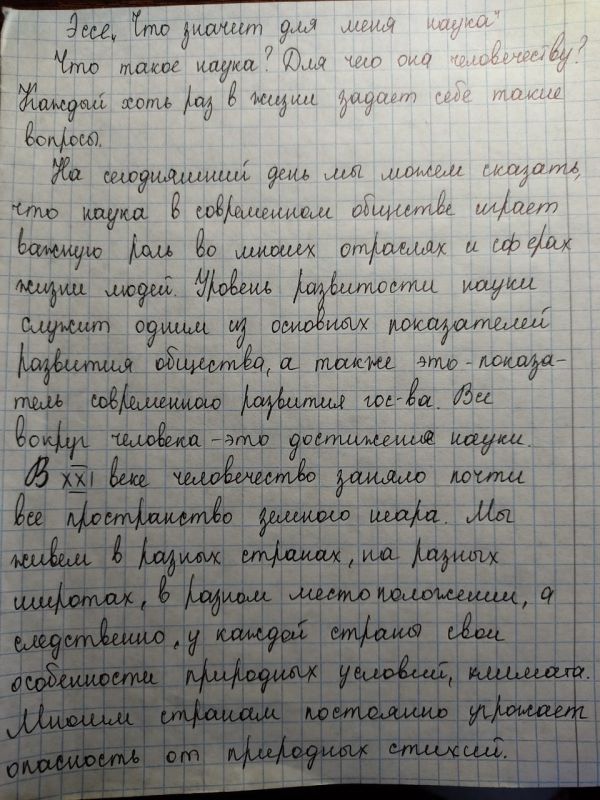 Эссе „Что значит для меня наука"
Что такое наука? Для чего она человечеству?
Каждый хоть раз в жизни задает себе такие
вопросы.
На сегодняшний день мы можем сказать,
что наука в современном обществе играет
важную роль во многих отраслях и сферах
жизни людей. Уровень развитости науки
служит одним из основных показателей
развития общества, а также это - показа-
тель современного развития гос-ва. Все
вокруг человека - это достижения науки.
В XXI веке человечество заняло почти
все пространство земного шара. Мы
живем в разных странах, на разных
широтах, в разном местоположении, а
следственно, у каждой страны свои
особенности природных условий, климата.
Многим странам постоянно угрожает
опасность от природных стихий.